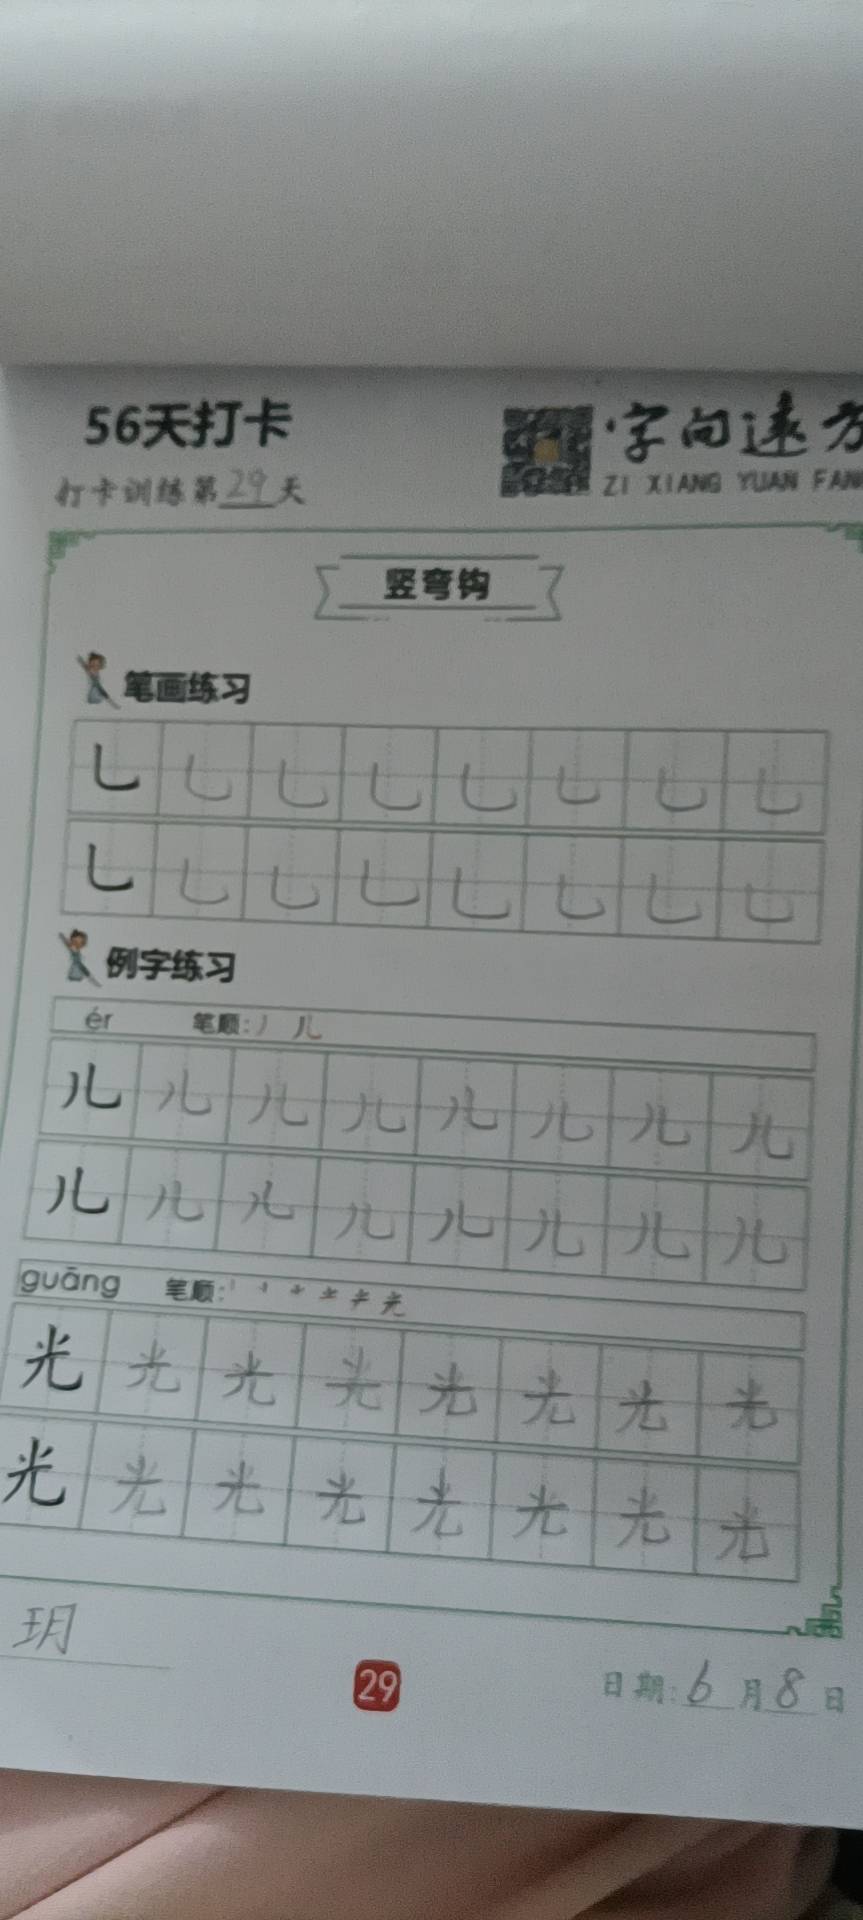 56天打卡
·字向远方
打卡训练第29天
ZI XIANG YUAN FAN
竖弯钩
笔画练习
乚 乚 乚 乚 乚 乚 乚 乚
乚 乚 乚 乚 乚 乚 乚 乚
例字练习
ér 笔顺:丿 儿
儿 儿 儿 儿 儿 儿 儿 儿
儿 儿 儿 儿 儿 儿 儿 儿
guāng 笔顺:
光 光 光 光 光 光 光 光
光 光 光 光 光 光 光 光
玥
29
日期:6月8日